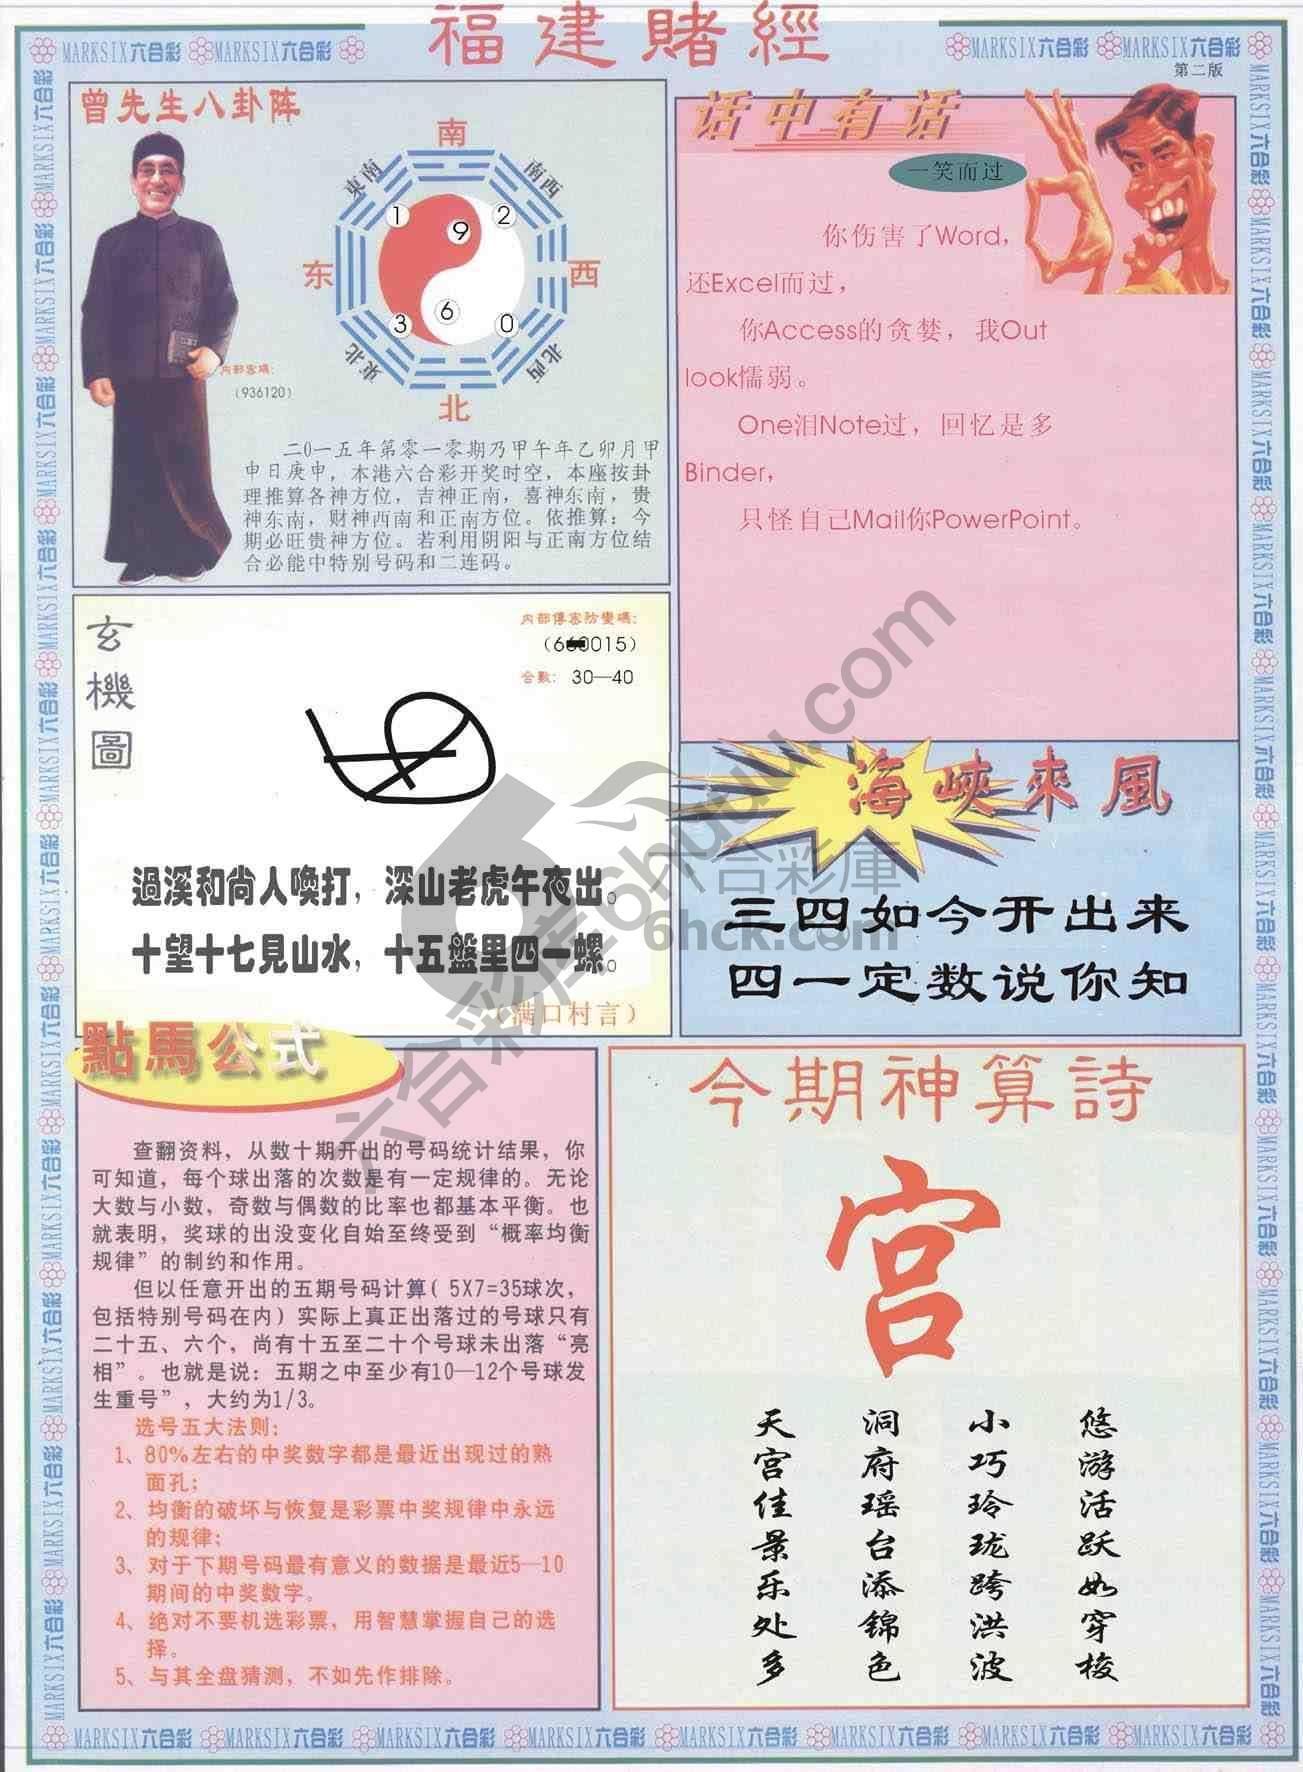 福建賭經
MARKSIX六合彩 MARKSIX六合彩
MARKSIX六合彩 MARKSIX六合彩
第二版
曾先生八卦阵
南
東南
南西
1
9
2
东
西
3
6
0
東北
北西
北
内部密碼:
(936120)
二0一五年第零一零期乃甲午年乙卯月甲
申日庚申，本港六合彩开奖时空，本座按卦
理推算各神方位，吉神正南，喜神东南，贵
神东南，财神西南和正南方位。依推算：今
期必旺贵神方位。若利用阴阳与正南方位结
合必能中特别号码和二连码。
话中有话
一笑而过
你伤害了Word，
还Excel而过，
你Access的贪婪，我Out
look懦弱。
One泪Note过，回忆是多
Binder，
只怪自己Mail你PowerPoint。
玄機圖
内部傳密防變碼:
合數: 30—40
過溪和尚人喚打，深山老虎午夜出。
十望十七見山水，十五盤里四一螺。
（满口村言）
海峽來風
三四如今开出来
四一定数说你知
點馬公式
查翻资料，从数十期开出的号码统计结果，你
可知道，每个球出落的次数是有一定规律的。无论
大数与小数，奇数与偶数的比率也都基本平衡。也
就表明，奖球的出没变化自始至终受到“概率均衡
规律”的制约和作用。
但以任意开出的五期号码计算( 5X7=35球次，
包括特别号码在内) 实际上真正出落过的号球只有
二十五、六个，尚有十五至二十个号球未出落“亮
相”。也就是说：五期之中至少有10—12个号球发
生重号”，大约为1/3。
选号五大法则：
1、80%左右的中奖数字都是最近出现过的熟
面孔；
2、均衡的破坏与恢复是彩票中奖规律中永远
的规律；
3、对于下期号码最有意义的数据是最近5—10
期间的中奖数字。
4、绝对不要机选彩票，用智慧掌握自己的选
择。
5、与其全盘猜测，不如先作排除。
今期神算詩
宫
天宫佳景乐处多
洞府瑶台添锦色
小巧玲珑跨洪波
悠游活跃如穿梭
MARKSIX六合彩 MARKSIX六合彩 MARKSIX六合彩 MARKSIX六合彩 MARKSIX六合彩 MARKSIX六合彩 MARKSIX六合彩 MARKSIX六合彩
六合彩库6huuu.com
六合彩庫
6hck.com